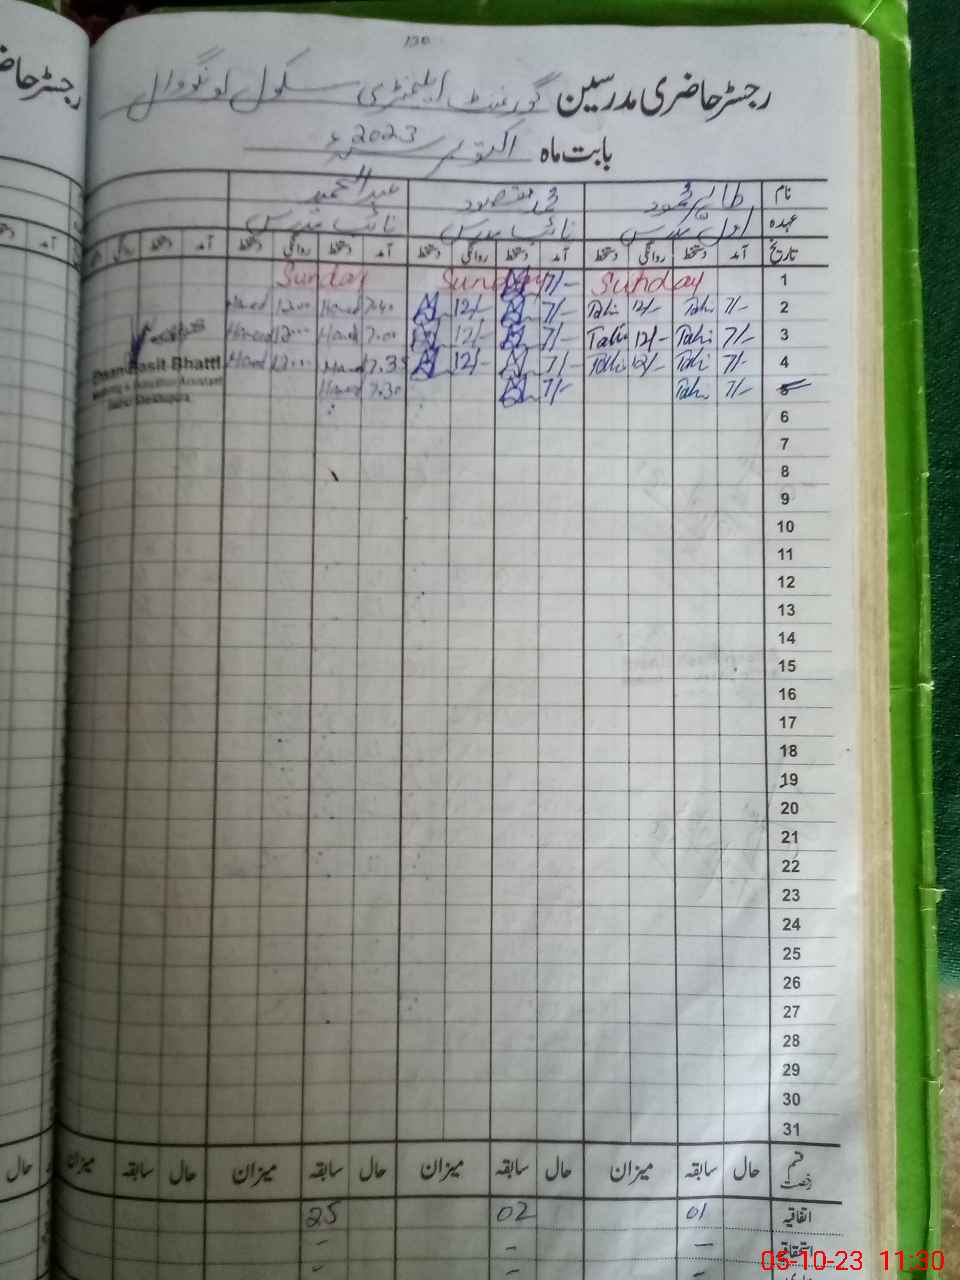 130
رجسٹر حاضری مدرسین گورنمنٹ ایلیمنٹری سکول لونگووال
بابت ماہ اکتوبر 2023ء
نام طاہر محمود محمد مقصود عبدالحمید
عہدہ اول مدرس نائب مدرس نائب مدرس
تاریخ آمد دستخط روانگی دستخط آمد دستخط روانگی دستخط آمد دستخط روانگی دستخط آمد دستخط روانگی
1 Sunday 7/- Sunday Sunday
2 7/- Tahir 12/- Tahir 7/- 12/- 7.40 Hamed 12.00 Hamed
3 7/- Tahir 12/- Tahir 7/- 12/- 7.00 Hamed 12.00 Hamed
4 7/- Tahir 12/- Tahir 7/- 12/- 7.35 Hamed 12.00 Hamed
5 7/- Tahir 7/- 7.30 Hamed
Basit Bhatti
Assistant
6
7
8
9
10
11
12
13
14
15
16
17
18
19
20
21
22
23
24
25
26
27
28
29
30
31
قسم رخصت حال سابقہ میزان حال سابقہ میزان حال سابقہ میزان حال سابقہ میزان حال
اتفاقیہ 01 02 25
استحقاقیہ - - -
05-10-23 11:30